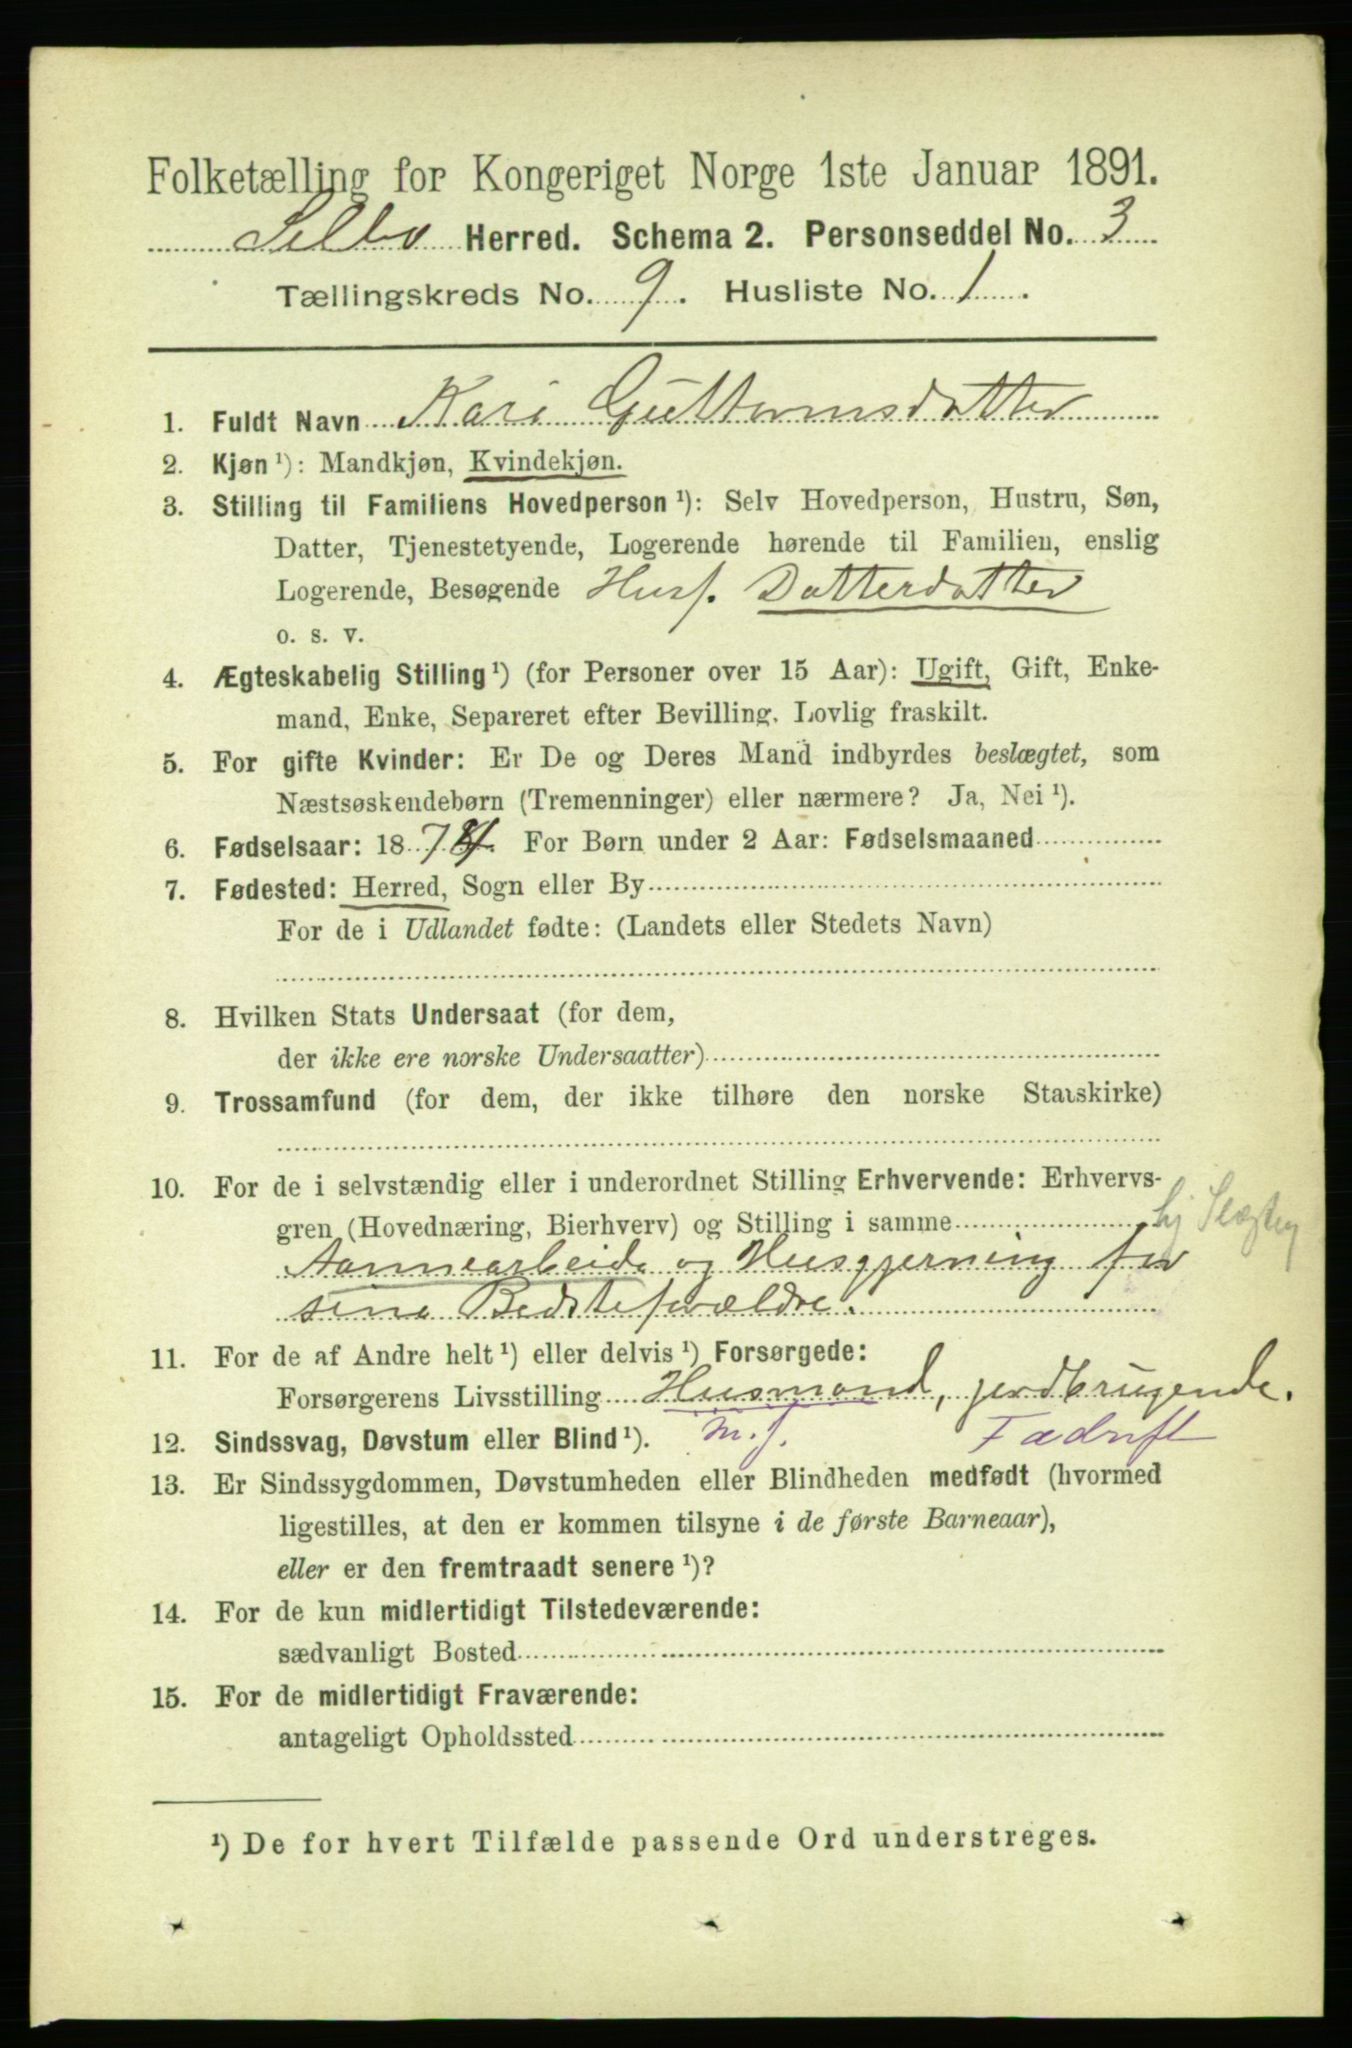 Folketælling for Kongeriget Norge 1ste Januar 1891.
Selbo Herred. Schema 2. Personseddel No. 3
Tællingskreds No. 9. Husliste No. 1.
1. Fuldt Navn Kari Guttormsdatter
2. Kjøn ¹): Mandkjøn, Kvindekjøn.
3. Stilling til Familiens Hovedperson ¹): Selv Hovedperson, Hustru, Søn,
Datter, Tjenestetyende, Logerende hørende til Familien, enslig
Logerende, Besøgende Husf. Datterdatter
o. s. v.
4. Ægteskabelig Stilling ¹) (for Personer over 15 Aar): Ugift, Gift, Enke-
mand, Enke, Separeret efter Bevilling. Lovlig fraskilt.
5. For gifte Kvinder: Er De og Deres Mand indbyrdes beslægtet, som
Næstsøskendebørn (Tremenninger) eller nærmere? Ja, Nei ¹).
6. Fødselsaar: 187 For Børn under 2 Aar: Fødselsmaaned
7. Fødested: Herred, Sogn eller By
For de i Udlandet fødte: (Landets eller Stedets Navn)
8. Hvilken Stats Undersaat (for dem,
der ikke ere norske Undersaatter)
9. Trossamfund (for dem, der ikke tilhøre den norske Statskirke)
10. For de i selvstændig eller i underordnet Stilling Erhvervende: Erhvervs-
gren (Hovednæring, Bierhverv) og Stilling i samme hj Slægtn
Aannearbeide og Husgjerning for
sine Bedsteforældre.
11. For de af Andre helt ¹) eller delvis ¹) Forsørgede:
Forsørgerens Livsstilling Husmand, jordbrugende.
12. Sindssvag, Døvstum eller Blind ¹). m. j. Fædrift
13. Er Sindssygdommen, Døvstumheden eller Blindheden medfødt (hvormed
ligestilles, at den er kommen tilsyne i de første Barneaar),
eller er den fremtraadt senere ¹)?
14. For de kun midlertidigt Tilstedeværende:
sædvanligt Bosted
15. For de midlertidigt Fraværende:
antageligt Opholdssted
¹) De for hvert Tilfælde passende Ord understreges.